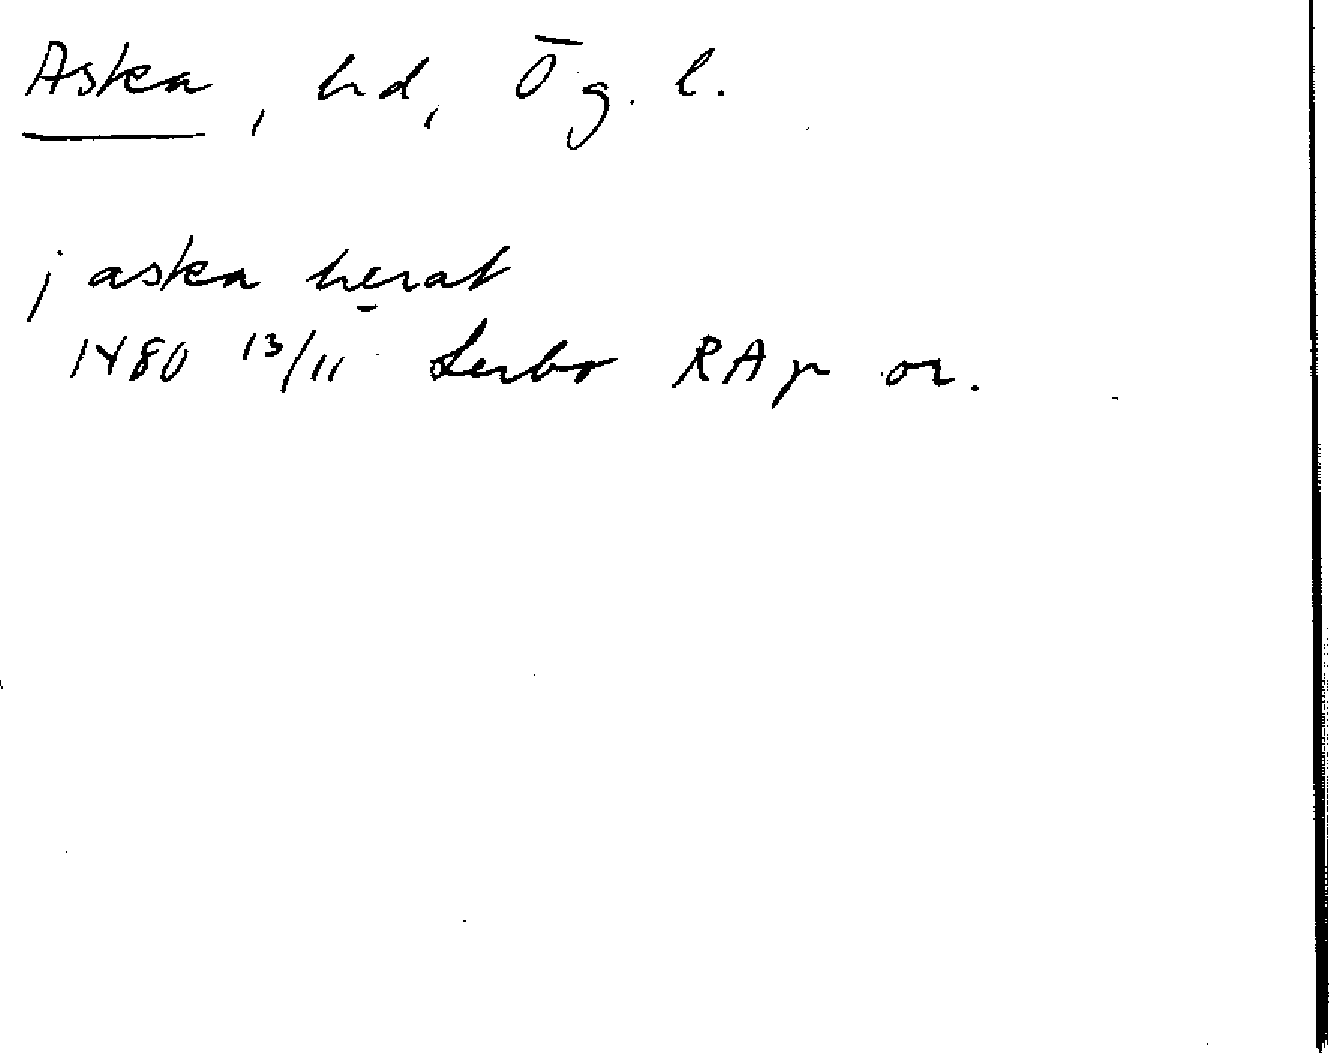 Aska, hd, Ög. l.
j aska hęrat
1480 13/11 Lerbo RAp or.